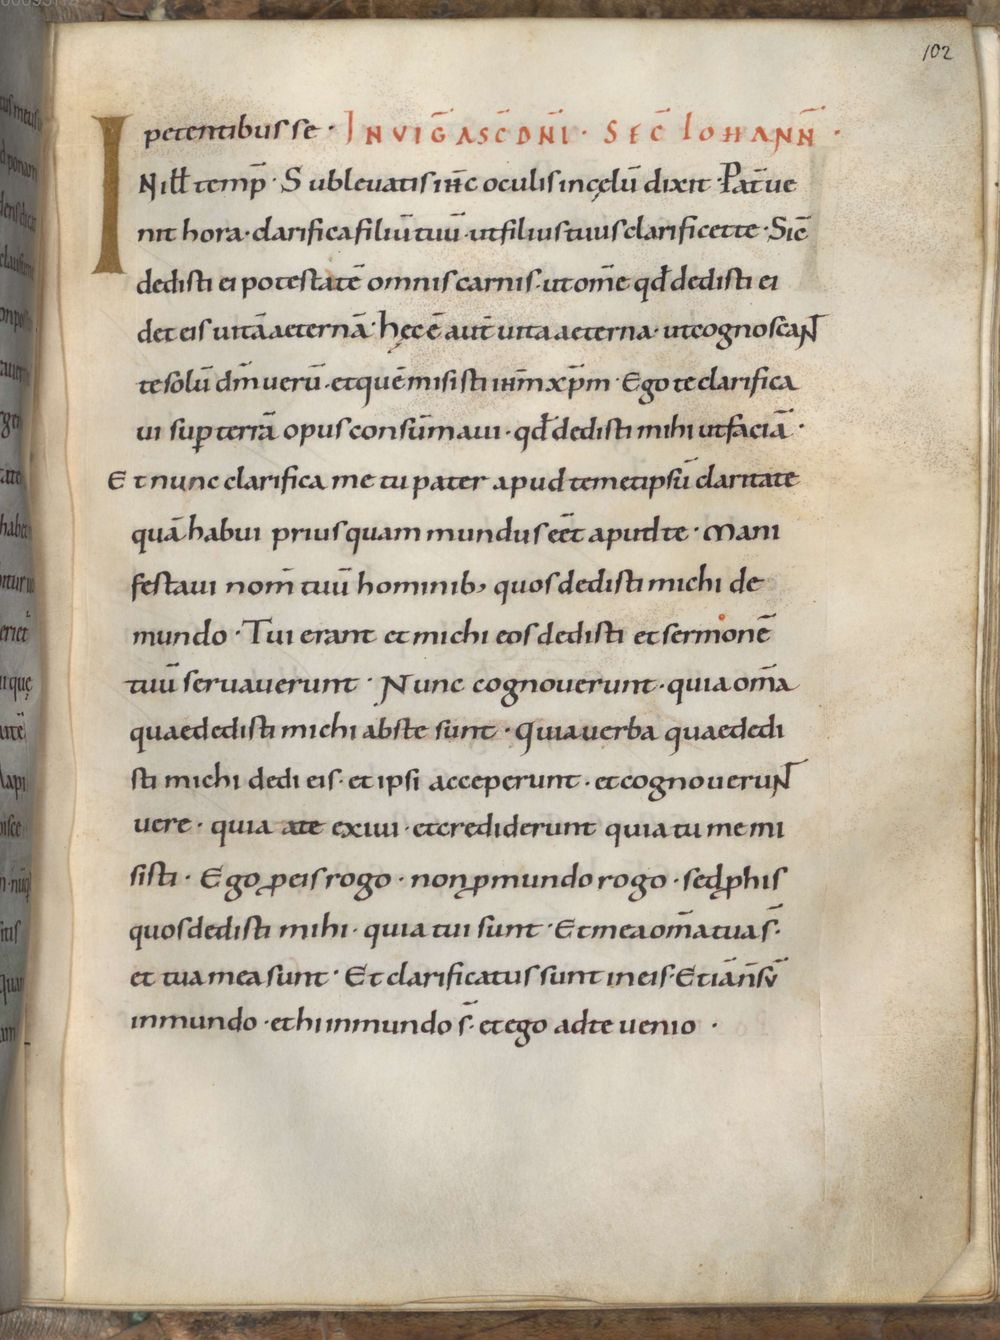 102
petentibus se · IN VIG̅ ASC̅ DN̅I · SEC̅ IOHANN̅ ·
IN ill̅ temp̅ · Sublevatis ih̅c oculis in cęlu̅ dixit · Pat̅ ve
nit hora · clarifica filiu̅ tuu̅ · ut filius tuus clarificet te · Sic̅
dedisti ei potestate̅ omnis carnis · ut om̅e qd̅ dedisti ei
det eis vita̅ aeterna̅ · hęc e̅ aut̅ vita aeterna · ut cognoscaNT
te solu̅ dm̅ veru̅ · et que̅ misisti ih̅m xp̅m · Ego te clarifica
vi sup̲ terra̅ opus consu̅mavi · qd̅ dedisti mihi ut facia̅ ·
Et nunc clarifica me tu pater apud temetipsu̅ claritate
qua̅ habui priusquam mundus ee̅t apud te · Mani
festavi nom̅ tuu̅ hominib; quos dedisti michi de
mundo · Tui erant et michi eos dedisti et sermone̅
tuu̅ servaverunt · Nunc cognoverunt · quia om̅a
quae dedisti michi abs te sunt · Quia verba quae dedi
sti michi dedi eis · et ipsi acceperunt · et cognoveruNT
vere · quia a te exivi · et crediderunt quia tu me mi
sisti · Ego ꝓ eis rogo · non ꝓ mundo rogo · sed ꝓ his
quos dedisti mihi · quia tui sunt · Et mea om̅a tua s̅ ·
et tua mea sunt · Et clarificatus sum in eis · Et ia̅ n̅ su̅
in mundo · et hi in mundo s̅ · et ego ad te venio ·